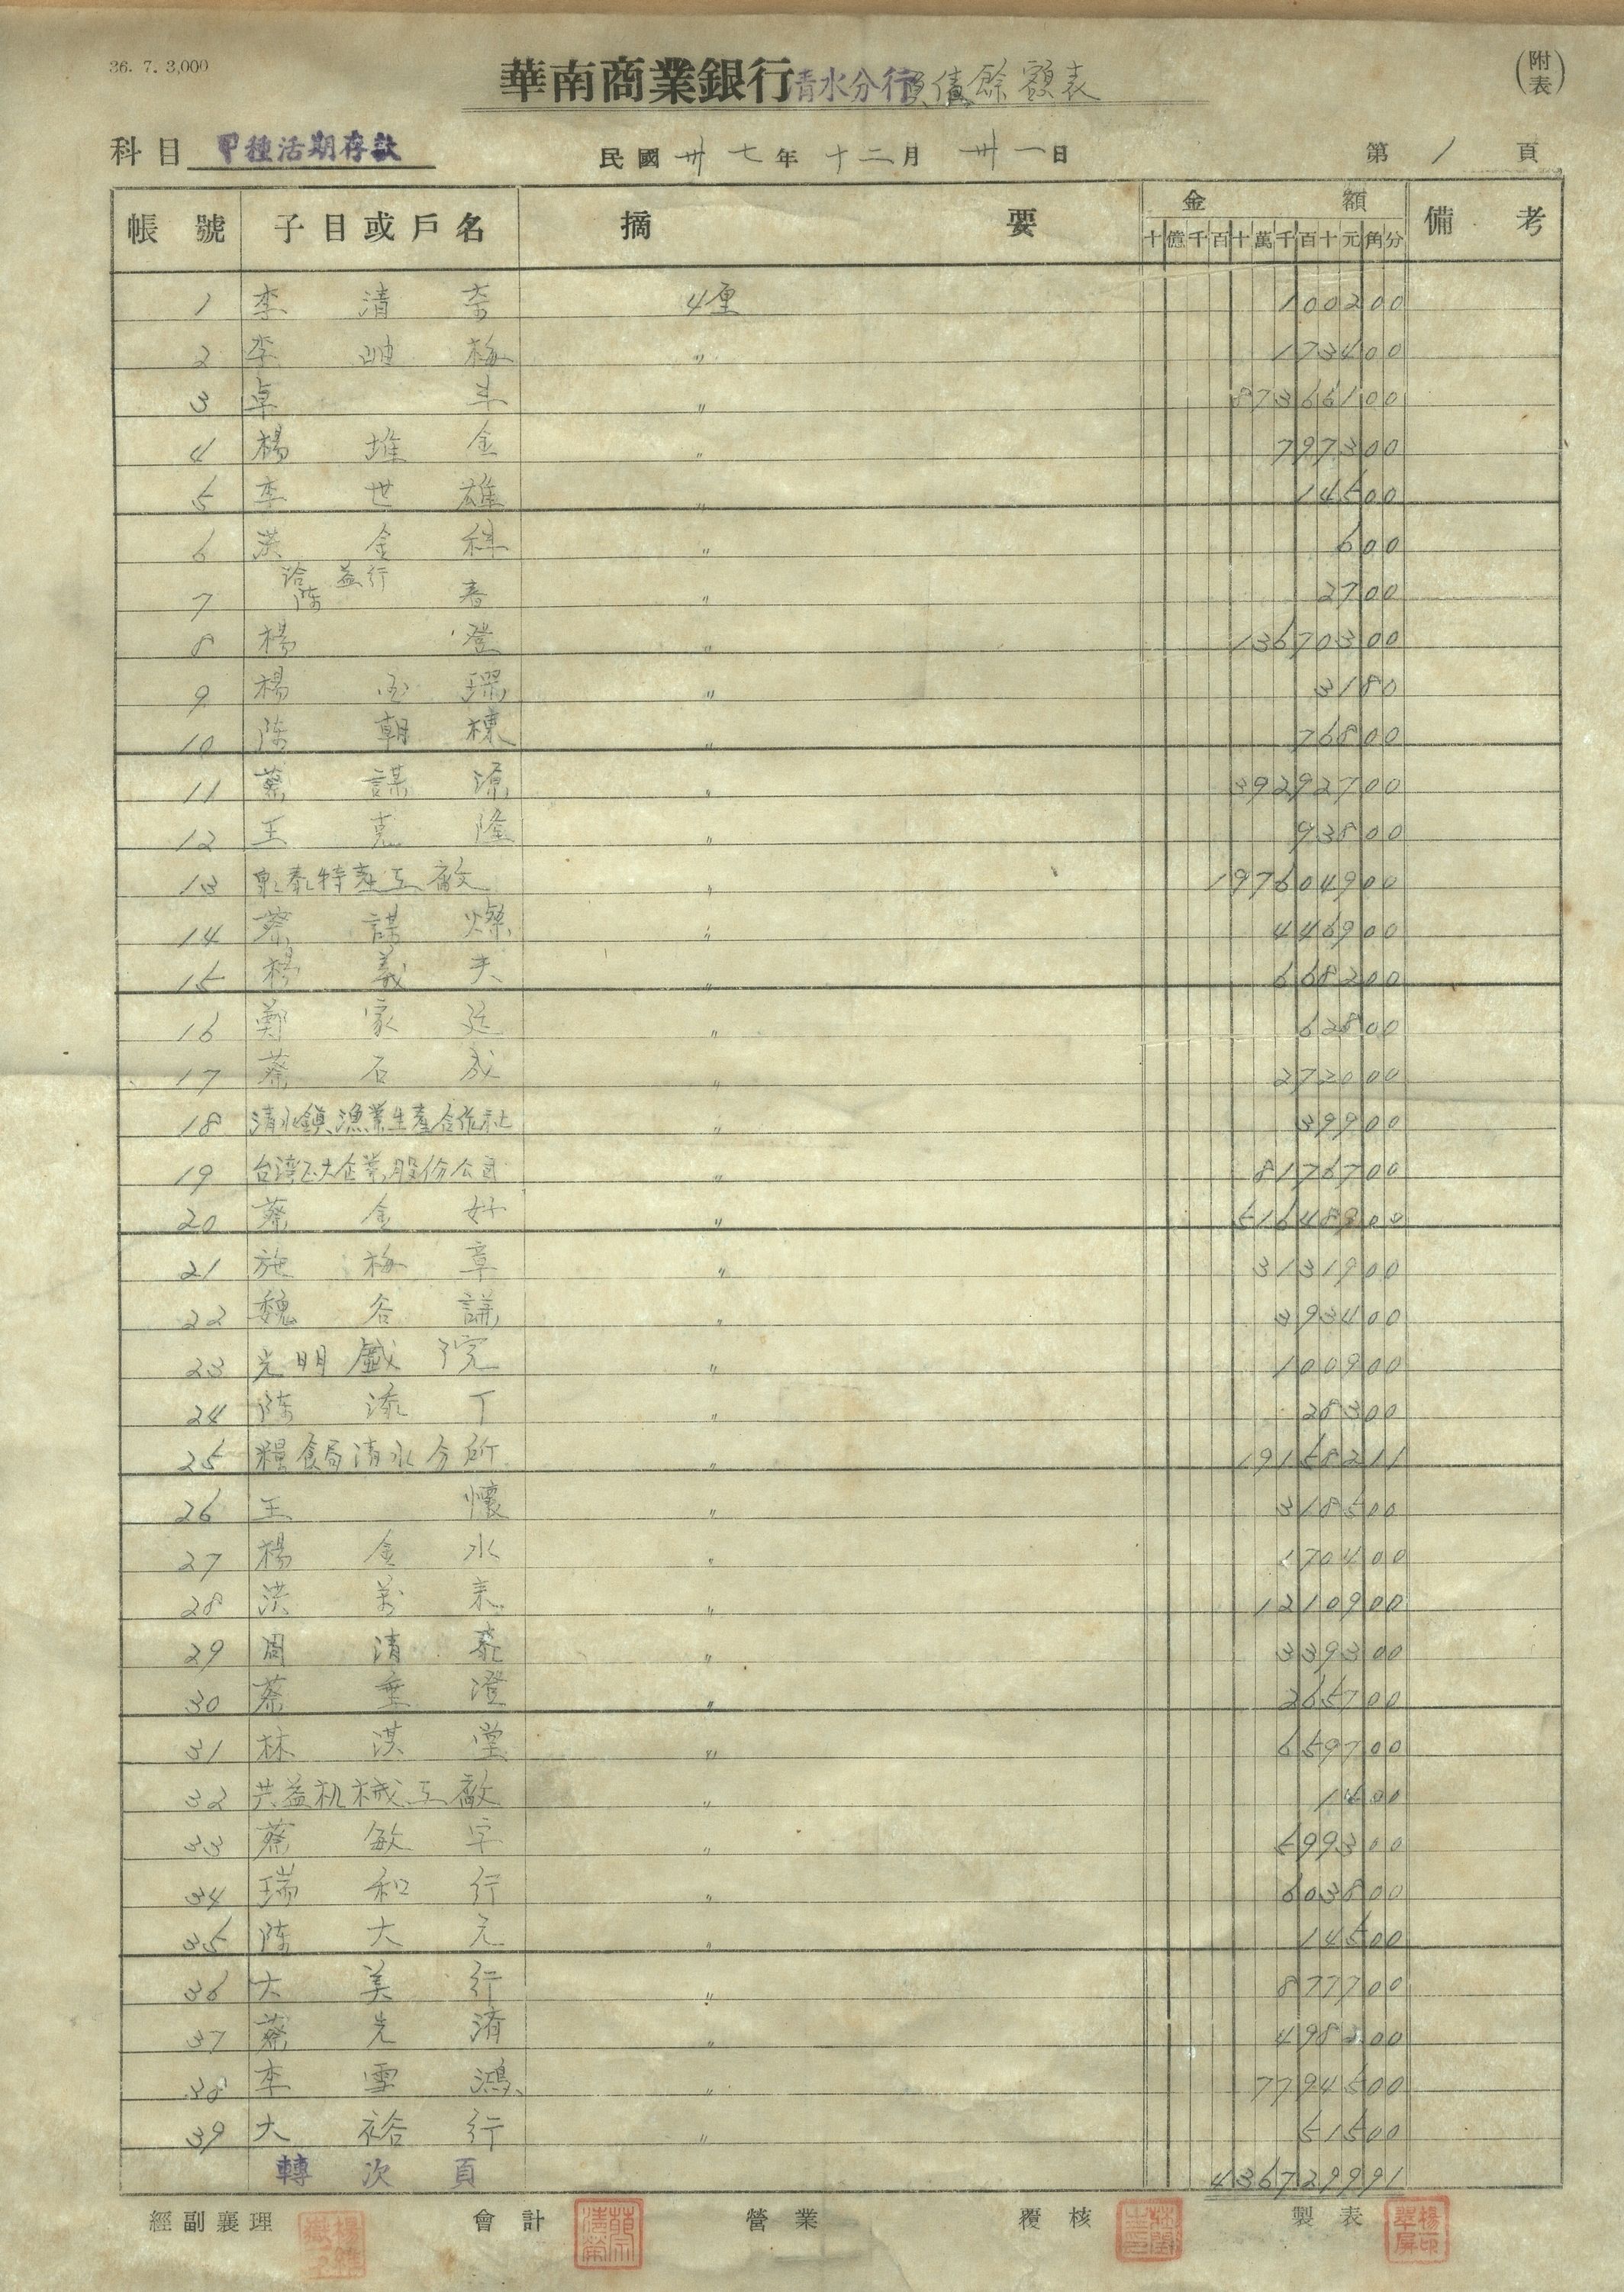 36. 7. 3,000
華南商業銀行清水分行負債餘額表
(附表)
科目 甲種活期存款 民國卅七年十二月卅一日 第1頁
帳號 子目或戶名 摘要 金額 備考
十億千百十萬千百十元角分
1 李清 4厘 100200
2 李岫梅 〃 173400
3 卓 〃 87366100
4 楊堆金 〃 797300
5 李世雄 〃 14500
6 洪金科 〃 600
7 洽益行 陈春 〃 2700
8 楊登 〃 13670300
9 楊 〃 3180
10 陈朝棟 〃 76800
11 蔡謀源 〃 39292700
12 王克隆 〃 93800
13 乾泰特產工廠 〃 197604900
14 蔡謀燦 〃 446900
15 楊義夫 〃 668200
16 鄭家廷 〃 62800
17 蔡石成 〃 272000
18 清水鎮漁業生產合作社 〃 39900
19 台湾正大企業股份公司 〃 8176700
20 蔡金妙 〃 51648900
21 施梅章 〃 3131900
22 魏谷謙 〃 393400
23 光明鐵院 〃 100900
24 陈添丁 〃 28300
25 糧食局清水分所 〃 19158211
26 王懷 〃 318500
27 楊金水 〃 170400
28 洪萬 〃 1210900
29 周清泰 〃 339300
30 蔡垂澄 〃 265700
31 林淇堂 〃 659700
32 共益机械工廠 〃 1600
33 蔡敏 〃 599300
34 瑞和行 〃 603800
35 陈大元 〃 14500
36 大美行 〃 877700
37 蔡先済 〃 498200
38 李雪鴻 〃 7794500
39 大裕行 〃 51500
轉次頁 436729991
經副襄理 會計 營業 覆核 製表
楊印翠屏